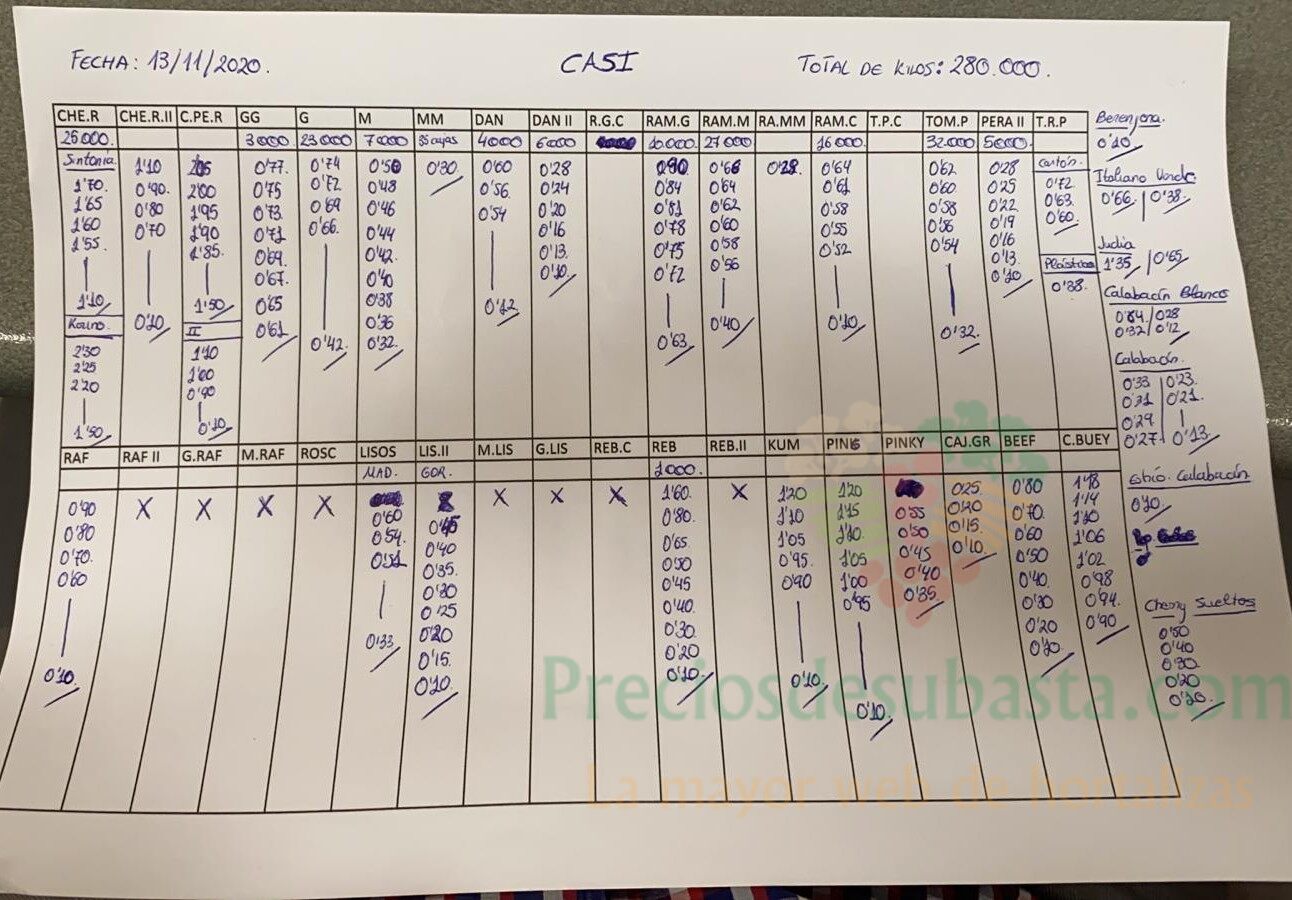 FECHA: 13/11/2020. CASI TOTAL DE KILOS: 280.000.
CHE.R CHE.R.II C.PE.R GG G M MM DAN DAN II R.G.C RAM.G RAM.M RA.MM RAM.C T.P.C TOM.P PERA II T.R.P
25000. 3000 23000 7000 35 cajas 4000 6000 10.000 27000 16000 32000 5000
Sintonia
1'70.
1'65
1'60
1'55.
1'10
Kouno.
2'30
2'25
2'20
1'50
1'10
0'90.
0'80
0'70
0'10
2'00
1'95
1'90
1'85.
1'50
II
1'10
1'00
0'90
0'10
0'77.
0'75
0'73
0'71
0'69.
0'67.
0'65
0'61
0'74
0'72
0'69
0'66.
0'42
0'50
0'48
0'46
0'44
0'42.
0'40
0'38
0'36
0'32
0'30
0'60
0'56
0'54
0'12
0'28
0'24
0'20
0'16
0'13.
0'10
0'90
0'84
0'81
0'78
0'75
0'72
0'63
0'66
0'64
0'62
0'60
0'58
0'56
0'40
0'28
0'64
0'61
0'58
0'55
0'52
0'10
0'62
0'60
0'58
0'56
0'54
0'32
0'28
0'25
0'22
0'19
0'16
0'13.
0'10
Cartón.
0'72
0'63.
0'60
Plástico
0'38.
Berenjena.
0'10
Italiano Verde
0'66. 0'38.
Judia
1'35 0'65
Calabacín Blanco
0'84/0'28
0'32/0'12
Calabacín.
0'33 0'23.
0'31 0'21.
0'29
0'27 0'13
Calabacín
0'10
Cherry Sueltos
0'50
0'40
0'30
0'20
0'10
RAF RAF II G.RAF M.RAF ROSC LISOS LIS.II M.LIS G.LIS REB.C REB REB.II KUM PINK PINKY CAJ.GR BEEF C.BUEY
MAD. GOR. 1000.
0'90
0'80
0'70.
0'60
0'10
X X X X
0'60
0'54.
0'51
0'33
0'45
0'40
0'35.
0'30
0'25
0'20
0'15.
0'10
X X X
1'60.
0'80.
0'65.
0'50
0'45
0'40.
0'30
0'20
0'10
X
1'20
1'10
1'05
0'95.
0'90
0'10
1'20
1'15
1'10.
1'05
1'00
0'95
0'10
0'55
0'50
0'45
0'40
0'35
0'25
0'20
0'15.
0'10
0'80
0'70.
0'60
0'50
0'40
0'30
0'20
0'10
1'18
1'14
1'10
1'06
1'02
0'98
0'94.
0'90
Preciosdesubasta.com
La mayor web de hortalizas